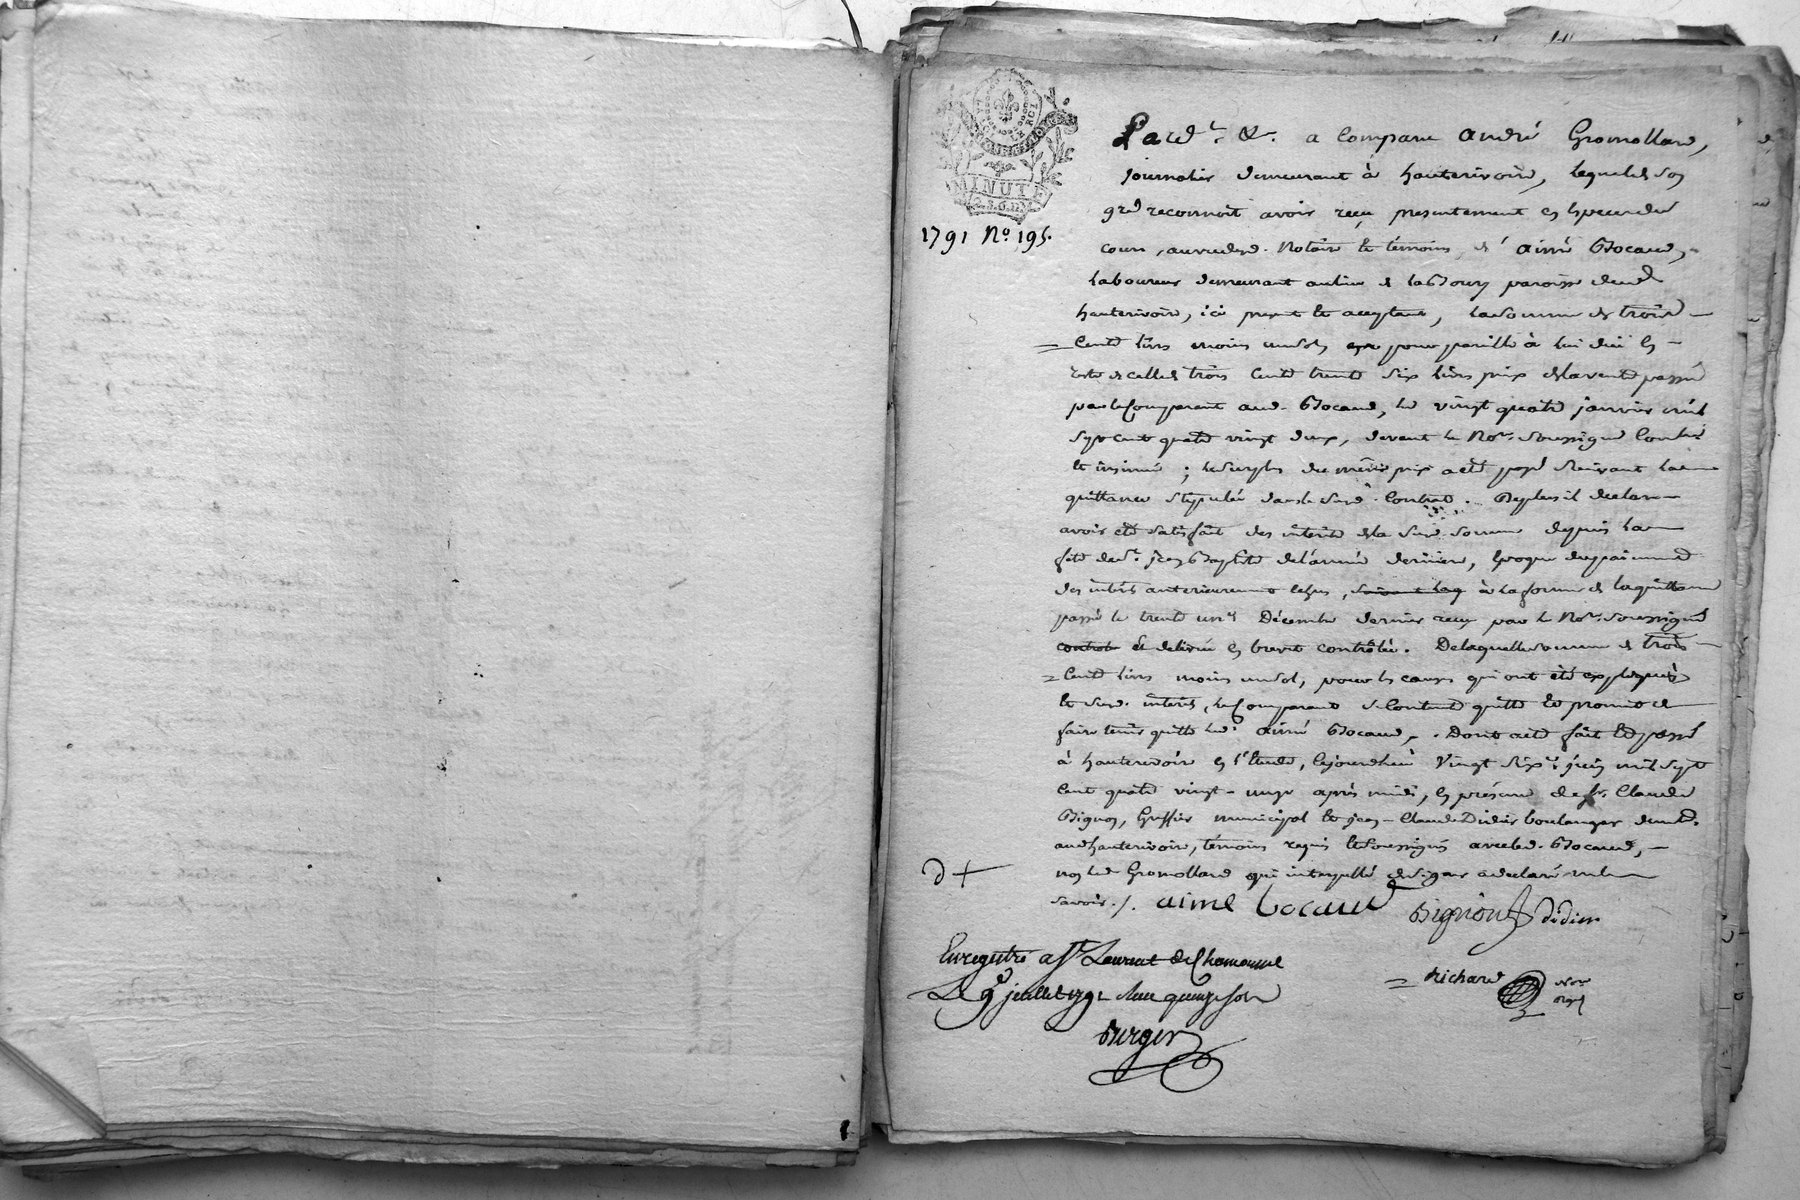 LA LOI ET LE ROI
MINUTE
2.S.6.D.
1791 No. 195.
Pard.t &. a comparu André Gromollard,
journalier demeurant à hauterivoire, lequel de son
gré reconnoit avoir reçu présentement en espèces de
cours, au vu desd. Notaire et témoins, d' aimé Bocaud,
laboureur demeurant au lieu de paroisse dud
hauterivoire, ici présent et acceptant, la somme de trois
= Cents livres moins un sol, pour pareille à lui due en
reste de celle de trois cents trente six livres prix de la vente passée
par le Comparant aud. Bocaud, le vingt quatre janvier mil
sept cent quatre vingt deux, devant le No.re soussigné Contrôlé
et insinué ; le surplus du même prix a été payé suivant la
quittance stipulée dans le susd. Contrat. De plus il déclare
avoir été satisfait des intérêts de la susd. somme depuis la
fête de St. jean Baptiste de l'année dernière, époque du paiement
des intérêts antérieurement échus, à la forme de la quittance
passée le trente un Décembre dernier reçue par le No.re soussigné
et délivrée en brevet contrôlée. De laquelle somme de trois
= Cents livres moins un sol, pour les causes qui ont été expliquées
et susd. intérêts, le Comparant se Contente quitte et promet
faire tenir quitte led. aimé Bocaud, . Dont acte fait et passé
à hauterivoire en l'étude, cejourdhui Vingt six juin mil sept
cent quatre vingt - onze après midi, en présence de sr. Claude
Bignon, Greffier municipal et jean - Claude Didier boulanger demt.
aud hauterivoire, témoins requis et soussignés avec led. Bocaud,
non led Gromollard qui interpellé de signer a déclaré ne le
savoir ./. aimé bocaud Bignon didier
Enregistré a St Laurent de Chamousset
Le 9 juillet 1791 quinze sols
= Richard No.re
Berger